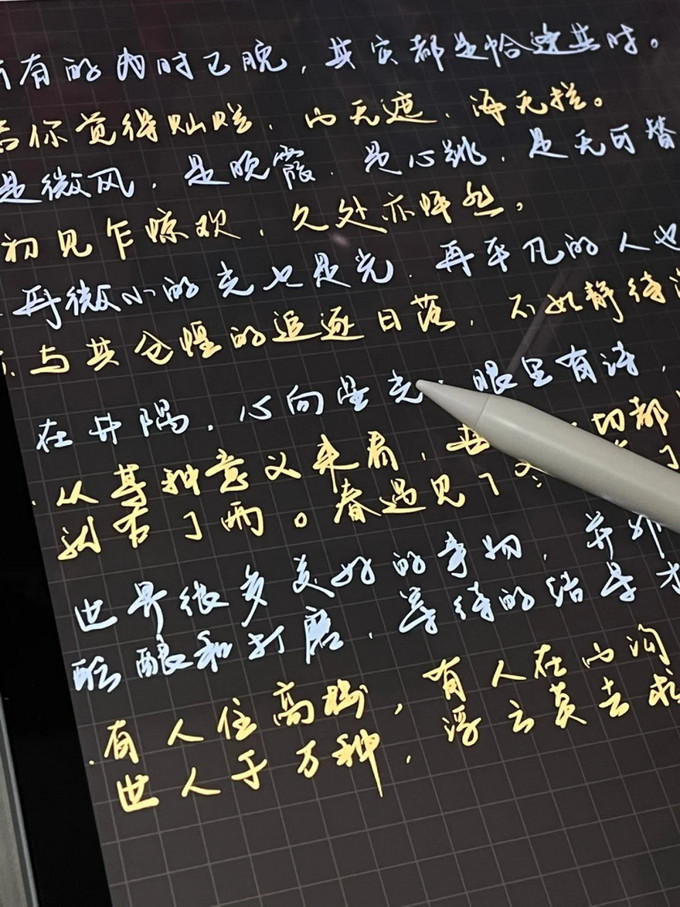 所有的为时已晚，其实都是恰逢其时。
若你觉得灿烂，山无遮，海无拦。
是微风，是晚霞，是心跳，是无可替
初见乍惊欢，久处亦怦然。
再微小的光也是光，再平凡的人也
与其仓惶的追逐日落，不如静待
在井隅，心向星光，眼里有诗，
从某种意义来看，世 切都
就有了雨。春遇见了冬
世界很多美好的事物，并非
酝酿和打磨，等待的结果才
有人住高楼，有人在山沟
世人千万种，浮云莫去求